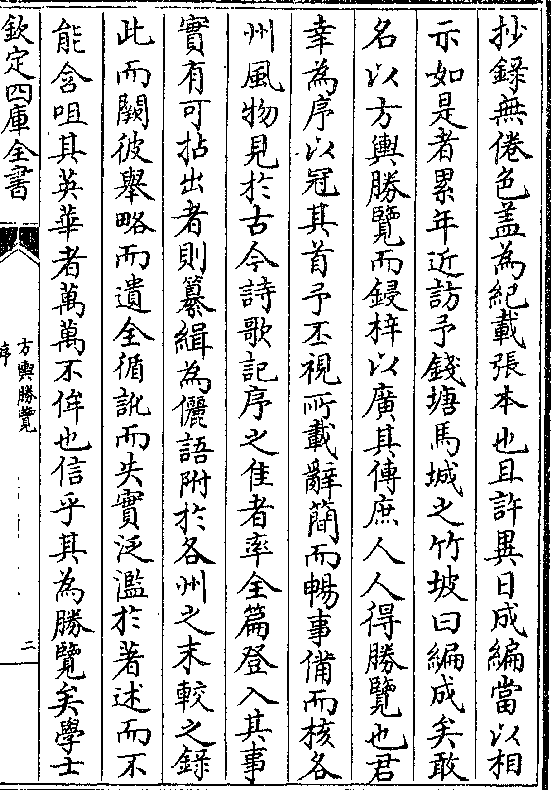 抄錄無倦色蓋為紀載張本也且許異日成編當以相
示如是者累年近訪予錢塘馬城之竹坡曰編成矣敢
名以方輿勝覽而鋟梓以廣其傳庶人人得勝覽也君
幸為序以冠其首予丕視所載辭簡而暢事備而核各
州風物見於古今詩歌記序之佳者率全篇登入其事
實有可拈出者則纂緝為儷語附於各州之末較之錄
此而闕彼舉略而遺全循訛而失實泛濫於著述而不
能含咀其英華者萬萬不侔也信乎其為勝覽矣學士
欽定四庫全書
方輿勝覽
序
二